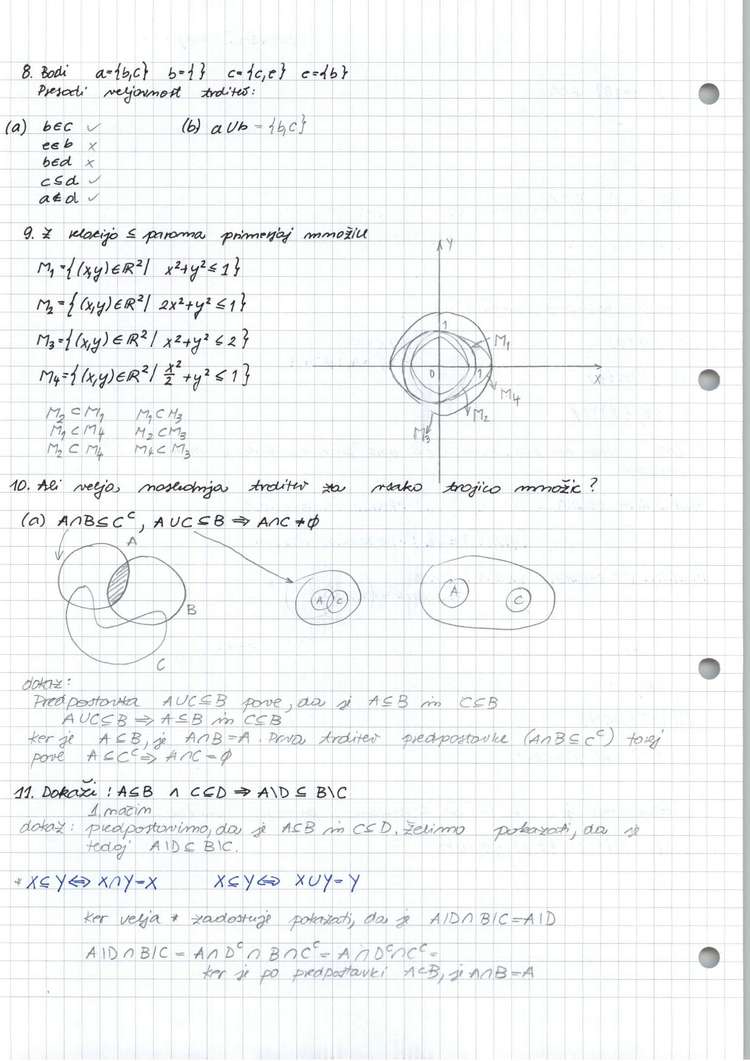 8. Bodi a={b,c} b={} c={c,e} e={b}
Presodi veljavnost trditev:
(a) b∈c ✓ (b) a∪b = {b,c}
e∈b x
b∈d x
c⊆d ✓
a∉d ✓
9. Z relacijo ⊆ paroma primerjaj množice
M₁={(x,y)∈ℝ²| x²+y²≤1}
M₂={(x,y)∈ℝ²| 2x²+y²≤1}
M₃={(x,y)∈ℝ²| x²+y²≤2}
M₄={(x,y)∈ℝ²| x²/2+y²≤1}
M₂⊂M₁ M₁⊂M₃
M₁⊂M₄ M₂⊂M₃
M₂⊂M₄ M₄⊂M₃
Y
1
M₁
0
1
X
M₄
M₂
M₃
10. Ali velja naslednja trditev za vsako trojico množic?
(a) A∩B⊆Cᶜ, A∪C⊆B ⇒ A∩C≠∅
A
B
C
A C
A
C
dokaz:
Predpostavka A∪C⊆B pove, da je A⊆B in C⊆B
A∪C⊆B ⇒ A⊆B in C⊆B
ker je A⊆B, je A∩B=A. Prva trditev predpostavke (A∩B⊆Cᶜ) torej
pove A⊆Cᶜ ⇒ A∩C=∅
11. Dokaži: A⊆B ∧ C⊆D ⇒ A\D⊆B\C
1. način
dokaz: predpostavimo, da je A⊆B in C⊆D. Želimo pokazati, da je
tedaj A\D⊆B\C.
* X⊆Y⇔X∩Y=X X⊆Y⇔X∪Y=Y
Ker velja * zadostuje pokazati, da je A\D∩B\C=A\D
A\D∩B\C = A∩Dᶜ∩B∩Cᶜ = A∩Dᶜ∩Cᶜ =
ker je po predpostavki A⊂B, je A∩B=A